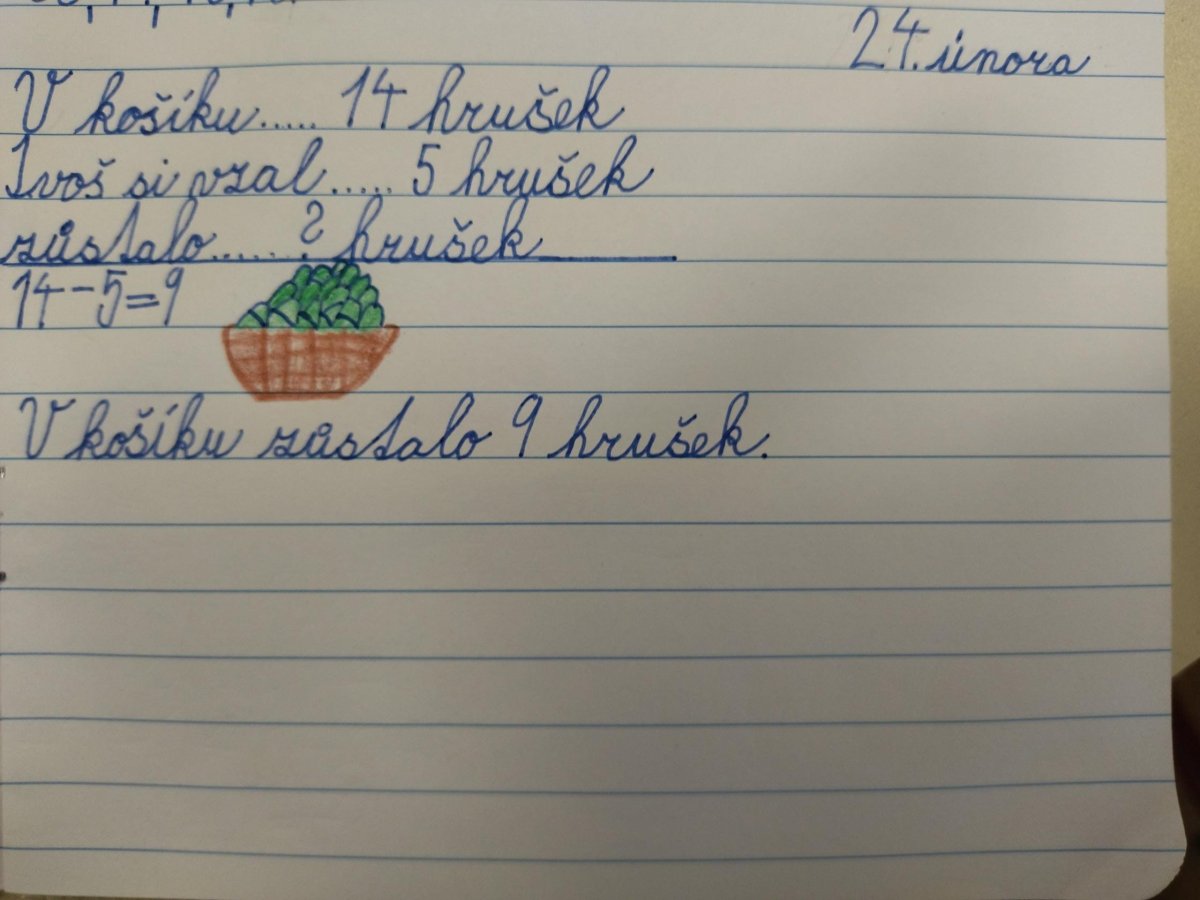 24. února
V košíku..... 14 hrušek
Ivoš si vzal..... 5 hrušek
zůstalo...... ? hrušek
14-5=9
V košíku zůstalo 9 hrušek.